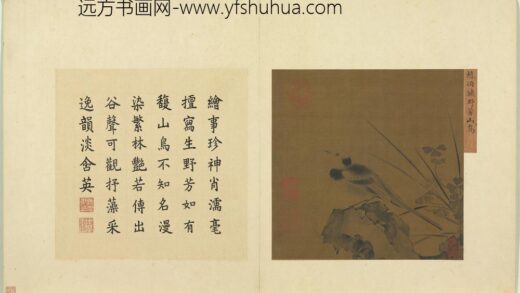 远方书画网-www.yfshuhua.com
繪事珍神肖濡毫
擅寫生野芳如有
馥山鳥不知名漫
染繁林艷若傳出
谷聲可觀抒藻采
逸韻淡含英